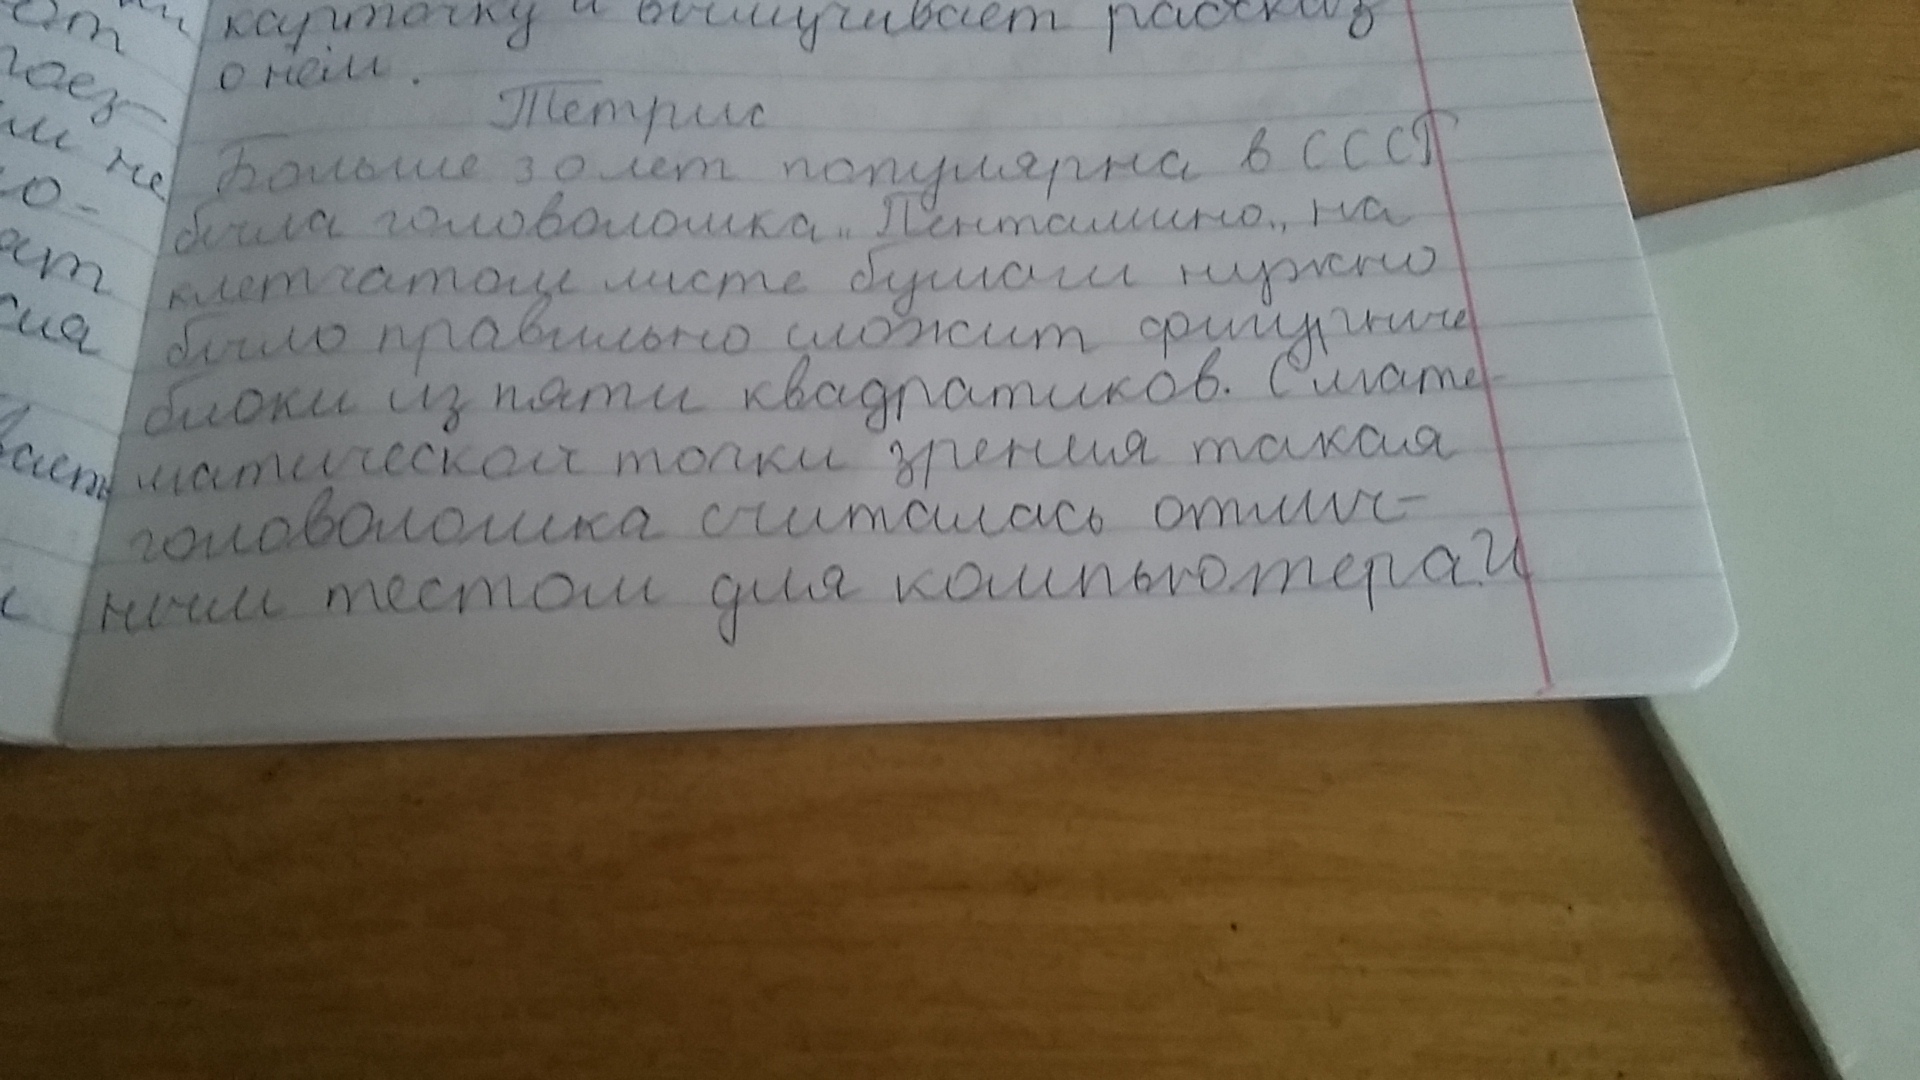 карточку и вышучивает рассказ
о нём.
Тетрис
Больше 30 лет популярна в СССР
была головоломка „Пентамино„ на
клетчатом листе бумаги нужно
было правильно сложит фигурние
блоки из пяти квадратиков. С мате-
матической точки зрения такая
головоломка считалась отлич-
ним тестом для компьютера. И